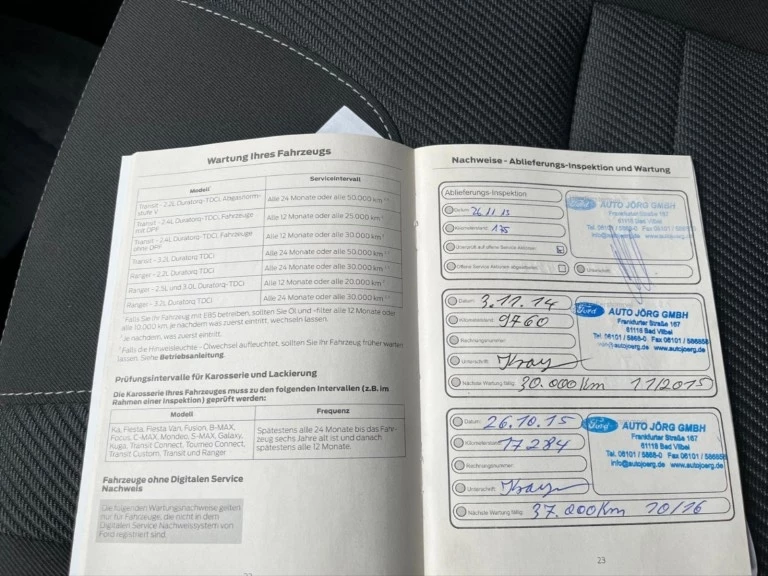 Wartung Ihres Fahrzeugs
Modell Serviceintervall
Transit - 2.2L Duratorq-TDCi, Abgasnorm-
stufe V
Alle 24 Monate oder alle 50.000 km
Transit - 2.4L Duratorq-TDCi, Fahrzeuge
mit DPF
Alle 12 Monate oder alle 25.000 km
Transit - 2.4L Duratorq-TDCi, Fahrzeuge
ohne DPF
Alle 12 Monate oder alle 30.000 km
Transit - 3.2L Duratorq TDCi Alle 24 Monate oder alle 50.000 km
Ranger - 2.2L Duratorq TDCi Alle 24 Monate oder alle 30.000 km
Ranger - 2.5L und 3.0L Duratorq-TDCi Alle 12 Monate oder alle 20.000 km
Ranger - 3.2L Duratorq TDCi Alle 24 Monate oder alle 30.000 km
Falls Sie Ihr Fahrzeug mit E85 betreiben, sollten Sie Öl und -filter alle 12 Monate oder
alle 10.000 km, je nachdem was zuerst eintritt, wechseln lassen.
Je nachdem, was zuerst eintritt.
Falls die Hinweisleuchte - Ölwechsel aufleuchtet, sollten Sie Ihr Fahrzeug früher warten
lassen. Siehe Betriebsanleitung.
Prüfungsintervalle für Karosserie und Lackierung
Die Karosserie Ihres Fahrzeugs muss zu den folgenden Intervallen (z.B. im
Rahmen einer Inspektion) geprüft werden:
Modell Frequenz
Ka, Fiesta, Fiesta Van, Fusion, B-MAX,
Focus, C-MAX, Mondeo, S-MAX, Galaxy,
Kuga, Transit Connect, Tourneo Connect,
Transit Custom, Transit und Ranger
Spätestens alle 24 Monate bis das Fahr-
zeug sechs Jahre alt ist und danach
spätestens alle 12 Monate.
Fahrzeuge ohne Digitalen Service
Nachweis
Die folgenden Wartungsnachweise gelten
nur für Fahrzeuge, die nicht in dem
Digitalen Service Nachweissystem von
Ford registriert sind.
Nachweise - Ablieferungs-Inspektion und Wartung
Ablieferungs-Inspektion
Datum: 26.11.13
Kilometerstand: 175
Überprüft auf offene Service-Aktionen
Offene Service Aktionen abgearbeitet
Unterschrift:
Ford AUTO JÖRG GMBH
Frankfurter Straße 167
61118 Bad Vilbel
Tel. 06101 / 5868-0 Fax 06101 /
www.autojoerg.de
Datum: 3.11.14
Kilometerstand: 9760
Rechnungsnummer:
Unterschrift:
Nächste Wartung fällig: 30.000 Km 11/2015
Ford AUTO JÖRG GMBH
Frankfurter Straße 167
61118 Bad Vilbel
Tel. 06101 / 5868-0 Fax 06101 / 586858
@autojoerg.de www.autojoerg.de
Datum: 26.10.15
Kilometerstand: 17284
Rechnungsnummer:
Unterschrift:
Nächste Wartung fällig: 37.000 Km 10/16
Ford AUTO JÖRG GMBH
Frankfurter Straße 167
61118 Bad Vilbel
Tel. 06101 / 5868-0 Fax 06101 / 586858
info@autojoerg.de www.autojoerg.de
23